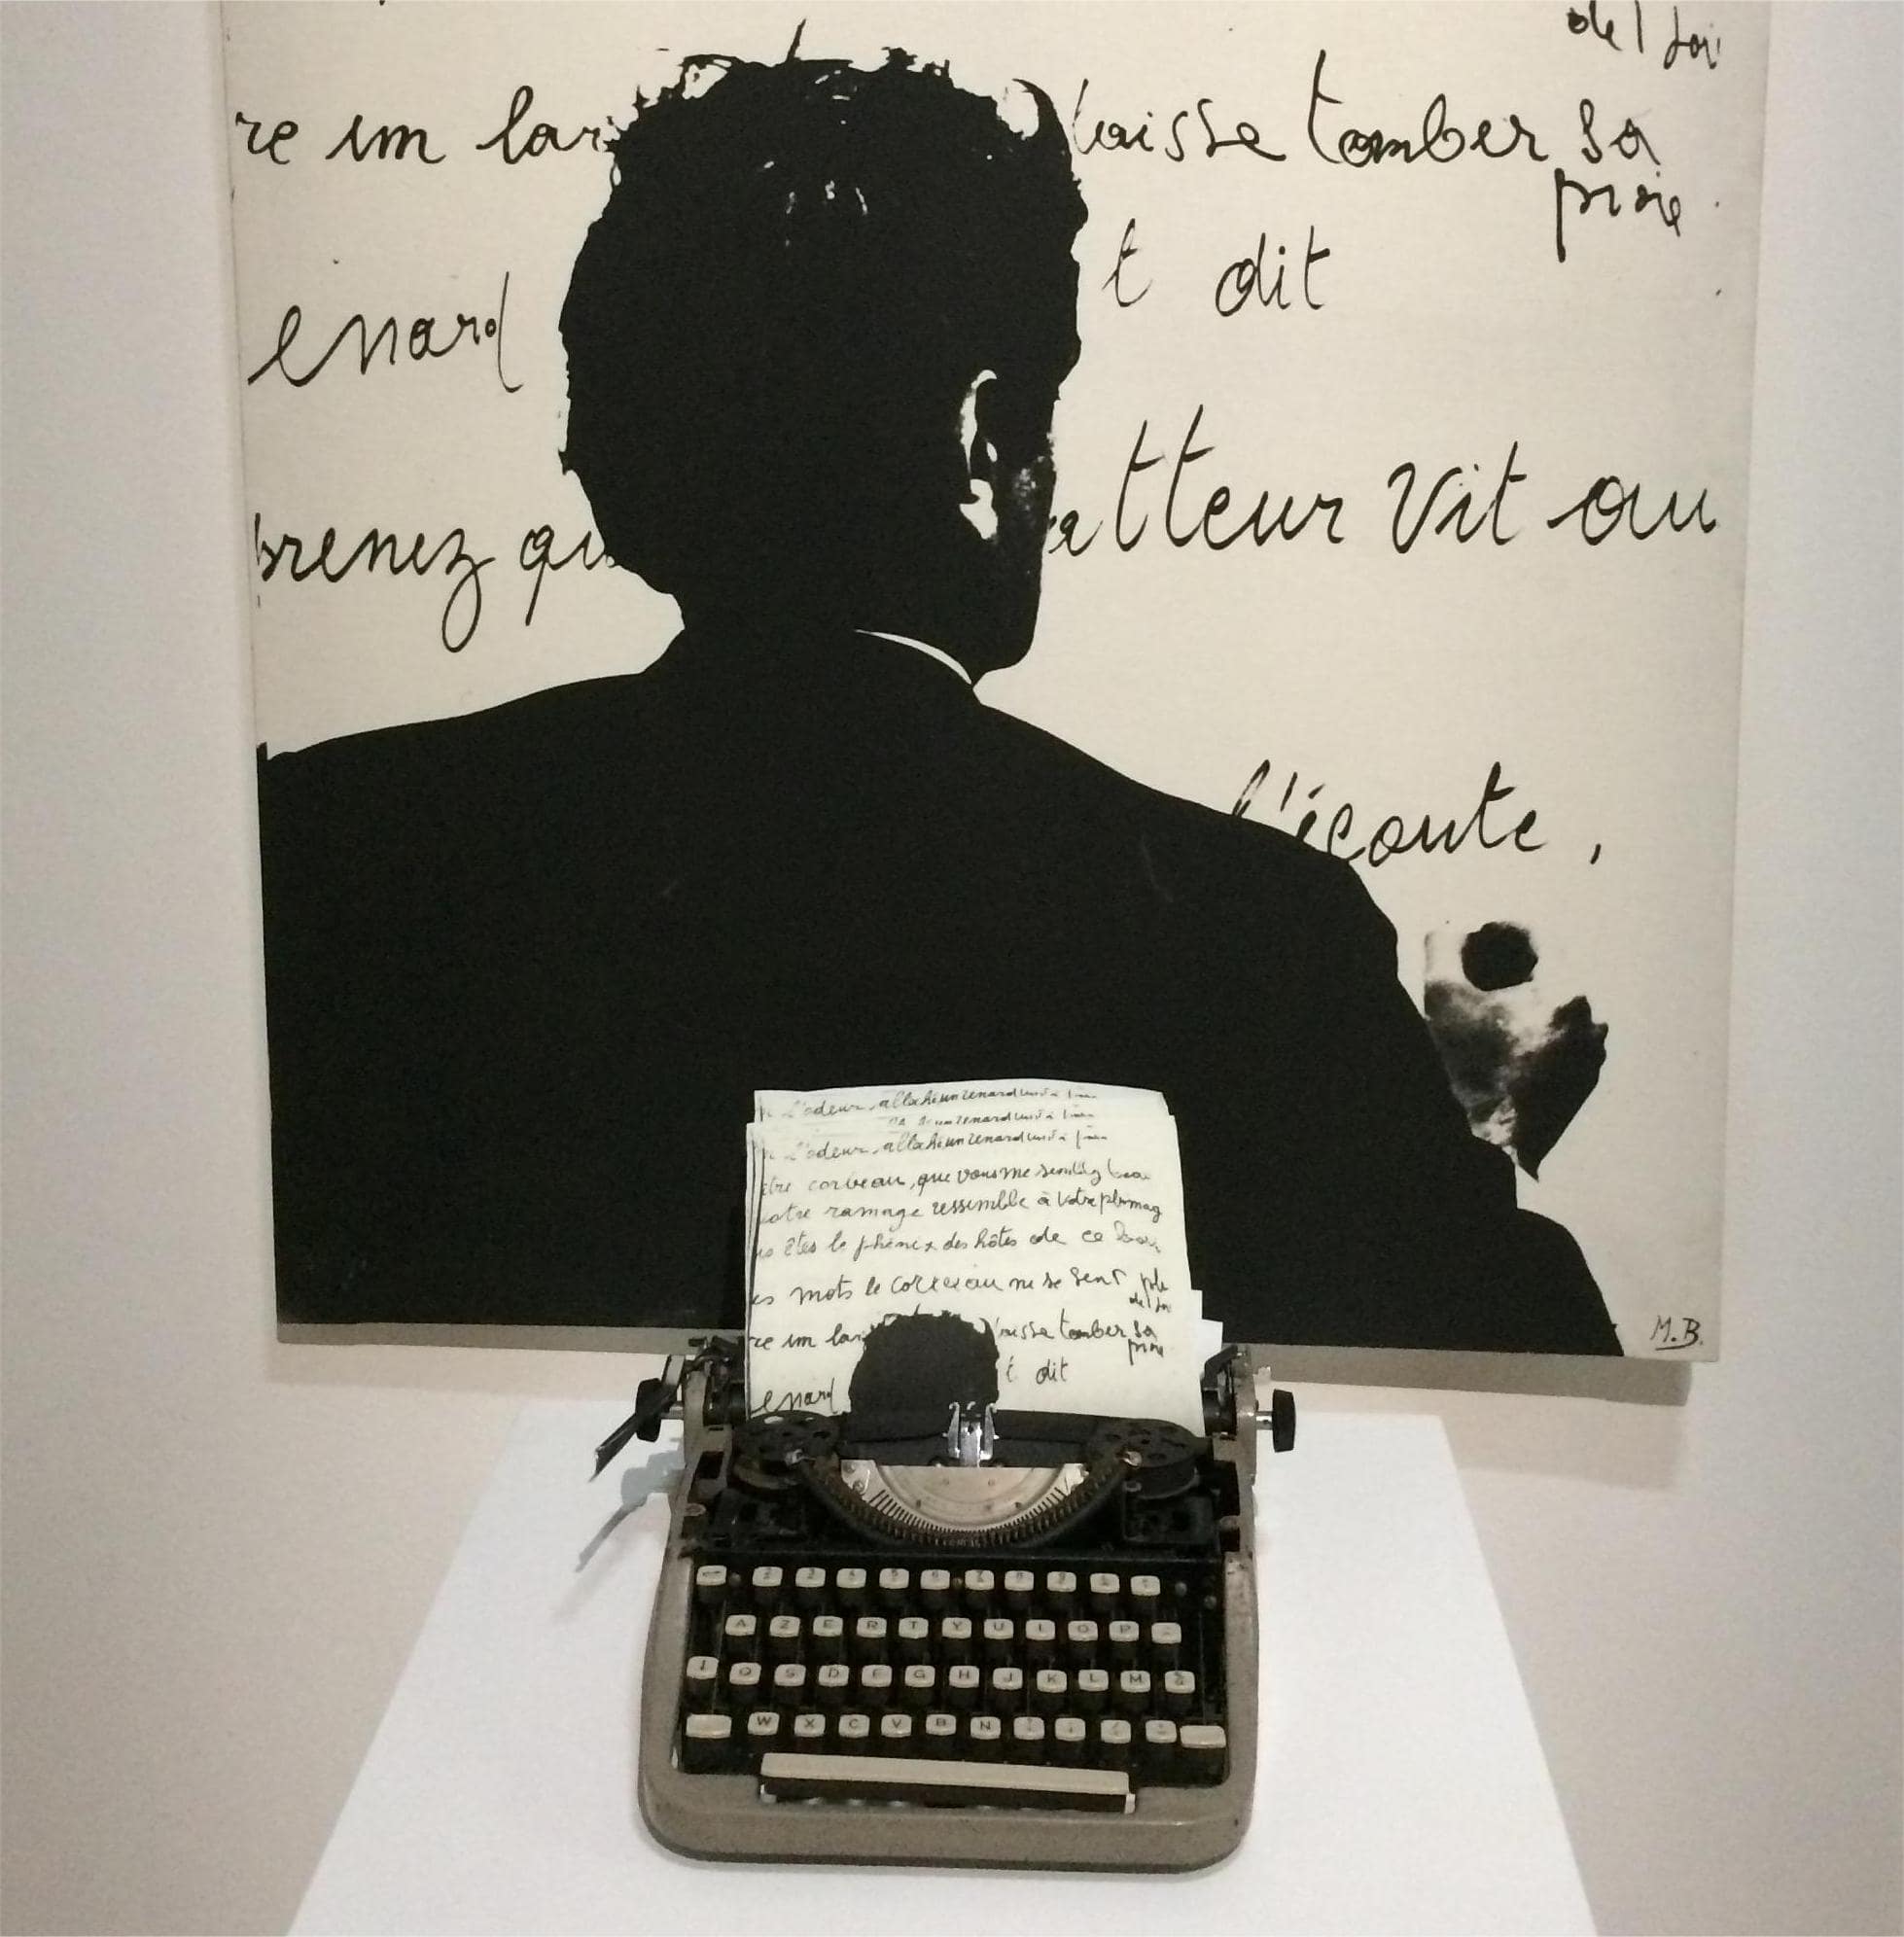 de
re un lar laisse tomber sa
proie
enard t dit
prenez qu atteur vit au
l'écoute,
M.B.
L'odeur, alléché un renard lui
L'odeur, alléché un renard lui
tre corbeau, que vous me semblez beau
votre ramage ressemble à votre plumag
êtes le phénix des hôtes de ce
es mots le corbeau ne se sent
re un lar laisse tomber sa
proie
enard t dit
A Z E R T Y U I O P
Q S D F G H J K L M
W X C V B N